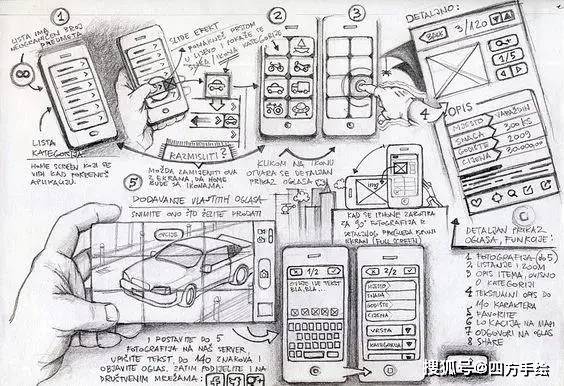 1
LISTA IMA
NEOGRANIČEN BROJ
PREDMETA
LISTA
KATEGORIJA
HOME SCREEN KOJI SE
VIDI KAD POKRENEŠ
APLIKACIJU.
SLIDE EFEKT
POMAKNEŠ PRSTOM
U LIJEVO I POKAŽE SE
SLIKA / IKONA KATEGORIJE
RAZMISLITI?
MOŽDA ZAMIJENITI OVA
2 EKRANA, DA HOME
BUDE SA IKONAMA.
2
3
KLIKOM NA IKONU
OTVARA SE DETALJAN
PRIKAZ OGLASA
DETALJNO:
BACK
3/120
1/5
4
OPIS
MJESTO
VARAŽDIN
SNAGA
300 KS
GODIŠTE
2009
CIJENA
30.000,00
5
DODAVANJE VLASTITIH OGLASA
SNIMITE ONO ŠTO ŽELITE PRODATI
OPCIJE
img
KAD SE IPHONE ZAROTIRA
ZA 90° FOTOGRAFIJA IZ
DETALJNOG PREGLEDA PUNI
EKRAN (FULL SCREEN)
1/2
OVDJE IDE TEKST
BLA, BLA..
2/2
MJESTO
SNAGA
GODIŠTE
CIJENA
VRSTA
KATEGORIJA
DETALJAN PRIKAZ
OGLASA, FUNKCIJE:
1 FOTOGRAFIJA (do 5)
2 LISTANJE, ZOOM
3 OPIS ITEMA, OVISNO
O KATEGORIJI
4 TEKSTUALNI OPIS DO
140 KARAKTERA
5 FAVORITE
6 LOKACIJA NA MAPI
7 ODGOVORI NA OGLAS
8 SHARE
I POSTAVITE DO 5
FOTOGRAFIJA NA NAŠ SERVER,
UPIŠITE TEKST, DO 140 ZNAKOVA I
OBJAVITE OGLAS, ZATIM PODIJELITE I NA
DRUŠTVENIM MREŽAMA:
搜狐号@四方手绘